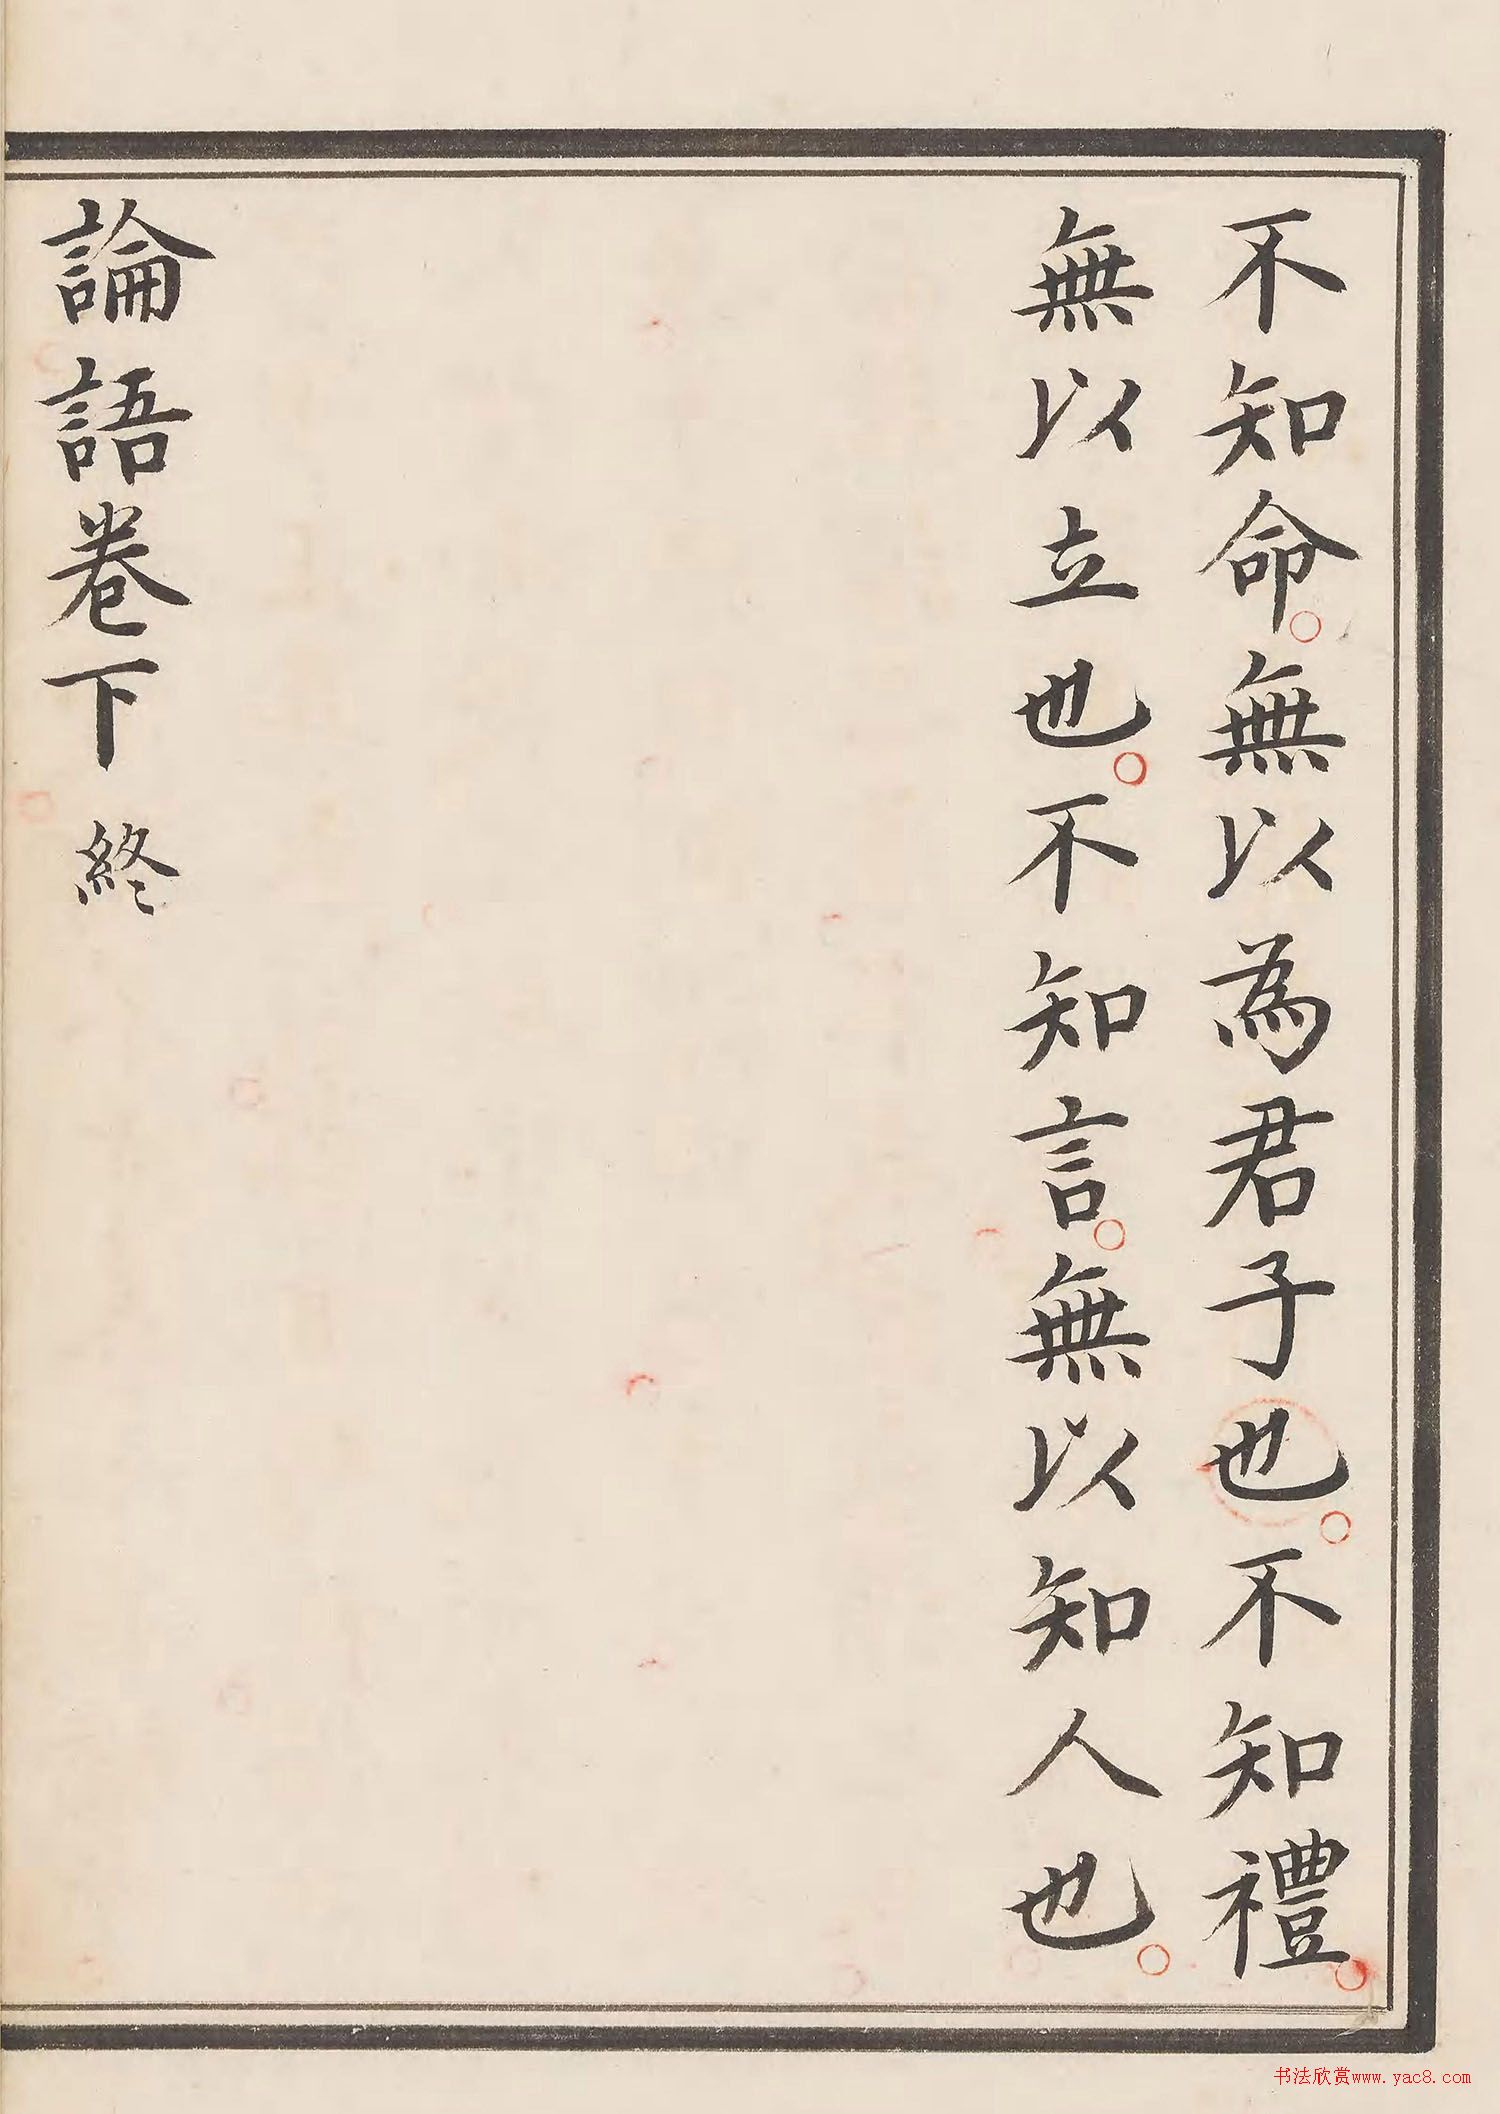 不知命。無以為君子也。不知禮。
無以立也。不知言。無以知人也。
論語卷下 終
书法欣赏www.yac8.com